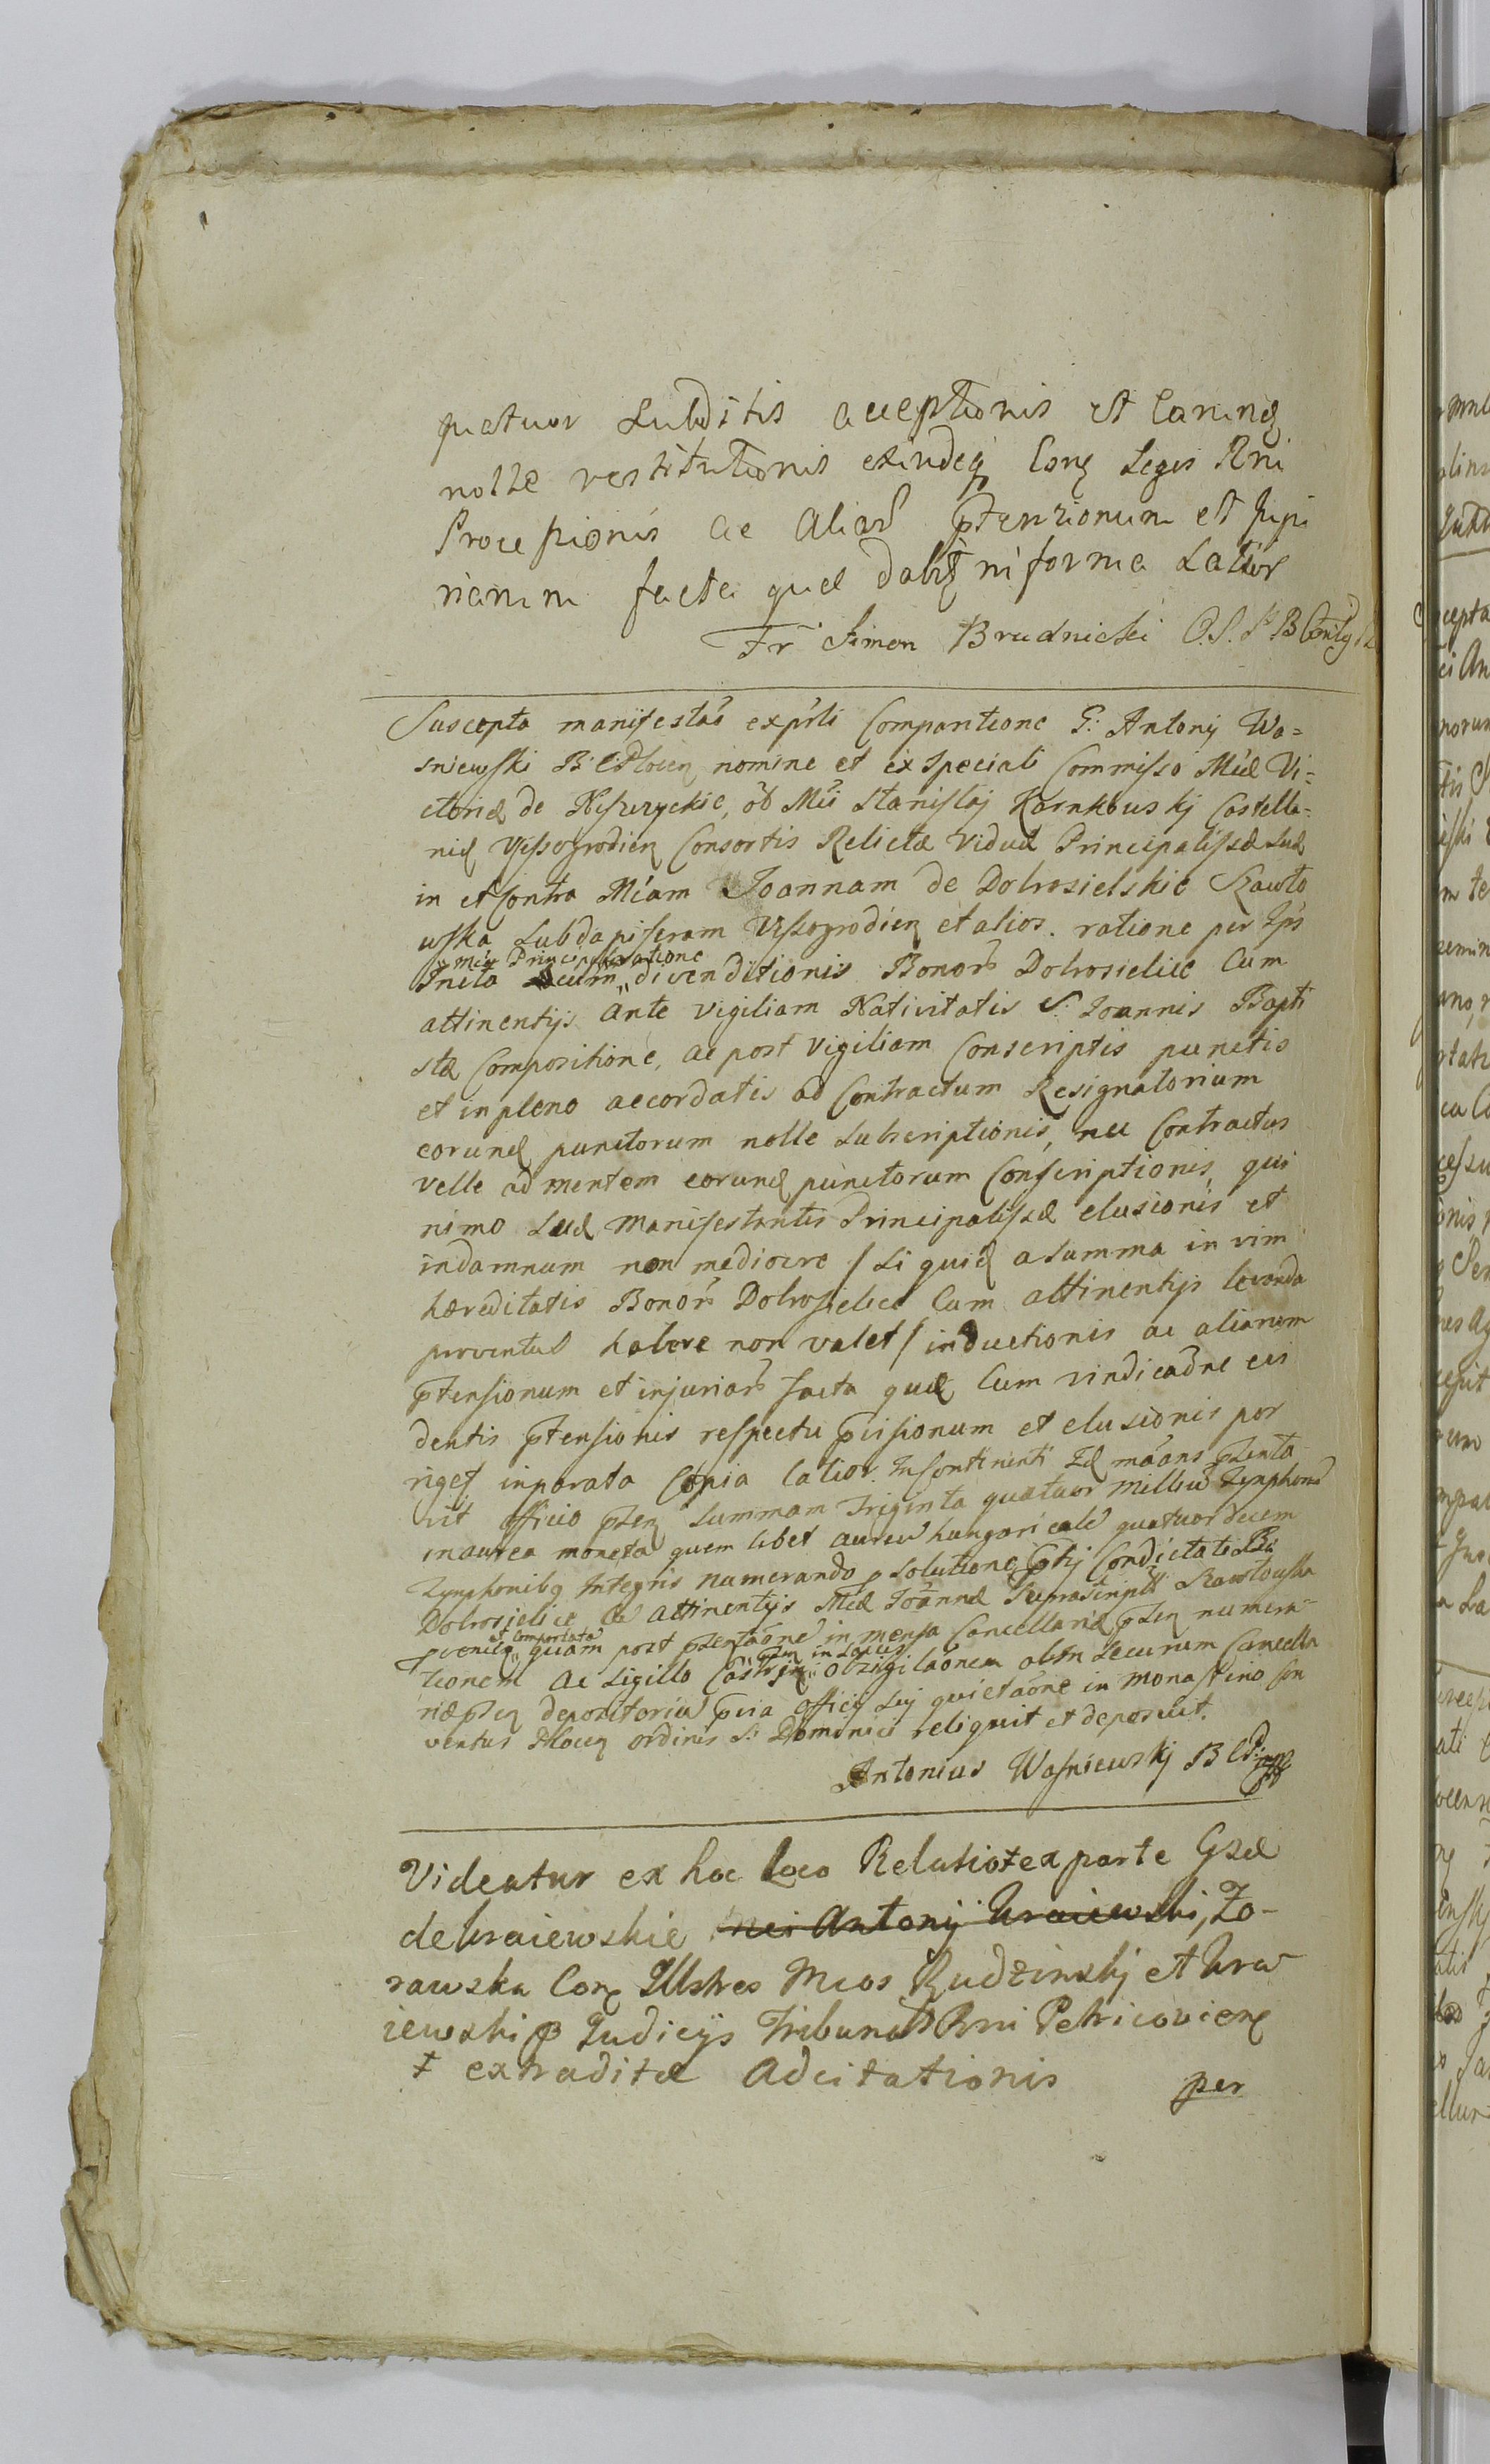 quatuor Subditis acceptionis et earund
nolle restitutionis exindeq Conq Legis Rni
Processionis ac aliar ptensionum et
riarum facta quæ dabit in forma Latior
Fr Simon Brudnicki O.S.P.B
Suscepta manifestaõ exprti Comparitione G: Antonij Wo=
sniewski B C Plocen nomine et ex Speciali Commisso Mcæ Vi=
ctoriæ de Niszczyckie, ob Mci Stanislaj Karnkowskj Castella=
nid Vissogrodien Consortis Relictæ viduæ Principalissæ Suæ
in et Contra Mcam Joannam de Dobrosielskie Szawło
wska Subdapiferam Vissogrodien et alios. ratione per Ips
Inita Secum „ Mcæ Principali ratione „ divenditionis Bonor Dobrosielice Cum
attinentijs ante vigiliam Nativitatis S: Joannis Bapti
stæ Compositione, ac post vigiliam Conscriptis punctis
et in pleno accordatis ad Contractum Resignatorium
eorund punctorum nolle Subscriptionis, nec Contractus
velle ad mentem eorund punctorum Conscriptionis, qui
nimo Suæ Manifestantis Principalissæ elusionis et
indamnum non mediocre / Si quid a Summa in vim
hæreditatis Bonor Dobrosielice Cum attinentijs levanda
proventus habere non valet / inductionis ac aliarum
ptensionum et injuriar facta quæ Cum vindicaõne ei
dentis ptensionis respectu pissionum et elusionis por
riget inparata Copia latior. In Continenti Id maans pzenta
vit officio pzen Summam Triginta quatuor millia Tymphonum
in aurea moneta quem libet aureum hungaricale quatuor decem
Tymphonibq Integris numerando p solutione Condictati
Dobrosielice ac attinentijs Mcæ Joannæ Suprascripti Szawlowska
pveniq „ et Comportata „ quam post pzentaõne in mensa Cancellariæ pzen numera-
tionem ac Sigillo Castrin „ pzen in Saccus „ obzigilaõnem obIn Securum Cancella
riæ pzen depozitorium pvia officij Suj quietaõne in Monastirio Con
ventus Plocen ordinis S: Dominici reliquit et deposuit.
Antonius Wosniewskj B C P
Videatur ex hoc loco Relatio ‡ ex parte Gsæ
de Kraiewskie Mci Antonij Kraiewski, Zo-
rawska Conq Illstres Mcos Rudzinskj et Kra
iewski p Judicijs Tribunal Rni Petricovien
‡ extraditæ adcitationis per